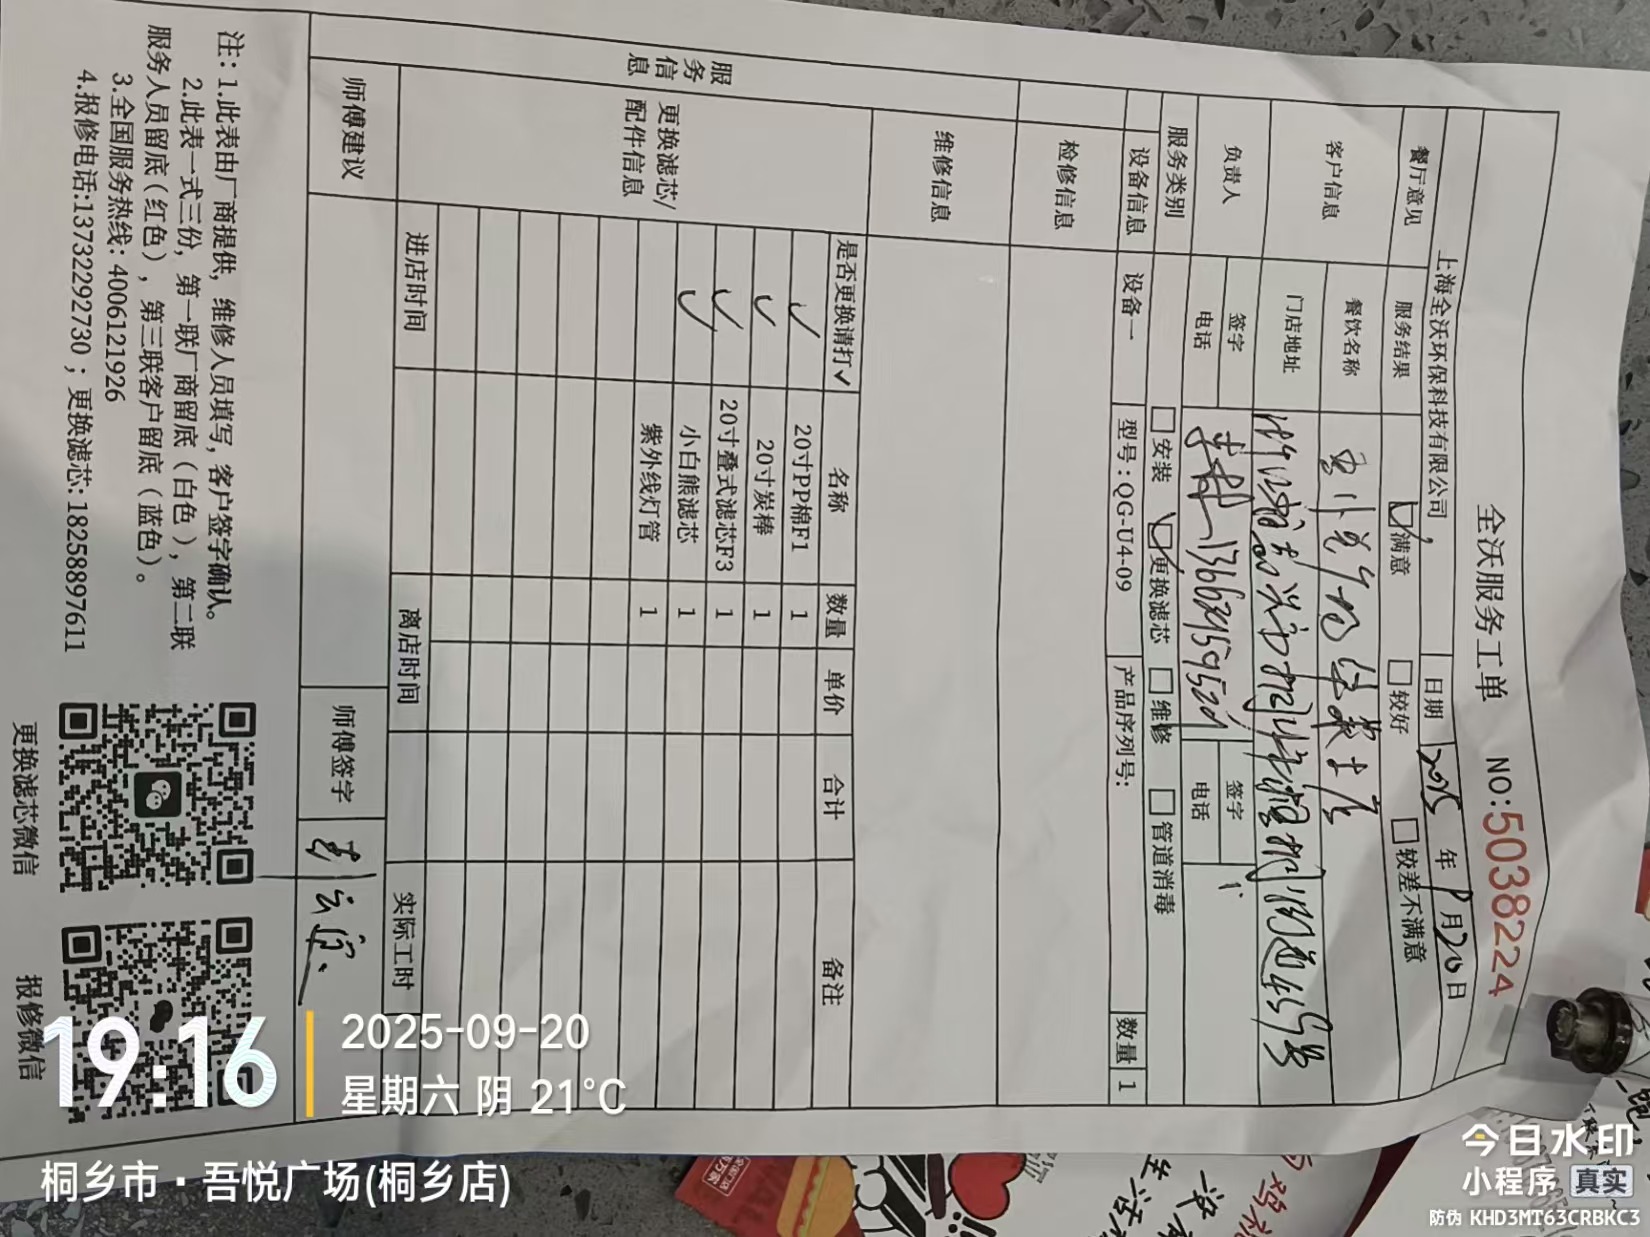 全沃服务工单 NO:5038224
上海全沃环保科技有限公司, 日期 2025 年 9 月 20 日
餐厅意见 服务结果 满意 较好 较差不满意
客户信息 餐饮名称
门店地址
负责人 签字 签字
电话 电话
服务类别 安装 更换滤芯 维修 管道消毒
设备信息 设备一 型号:QG-U4-09 产品序列号: 数量 1
检修信息
维修信息
服务信息
更换滤芯/配件信息
是否更换请打✓ 名称 数量 单价 合计 备注
✓ 20寸PP棉F1 1
✓ 20寸炭棒 1
✓ 20寸叠式滤芯F3 1
✓ 小白熊滤芯 1
紫外线灯管 1
进店时间 离店时间 实际工时
师傅建议 师傅签字
注: 1.此表由厂商提供, 维修人员填写, 客户签字确认。
2.此表一式三份, 第一联厂商留底(白色), 第二联
服务人员留底(红色), 第三联客户留底(蓝色)。
3.全国服务热线: 4006121926
4.报修电话:13732292730 ; 更换滤芯: 18258897611
更换滤芯微信 报修微信
19:16
2025-09-20
星期六 阴 21°C
桐乡市·吾悦广场(桐乡店)
今日水印
小程序 真实
防伪 KHD3MT63CRBKC3